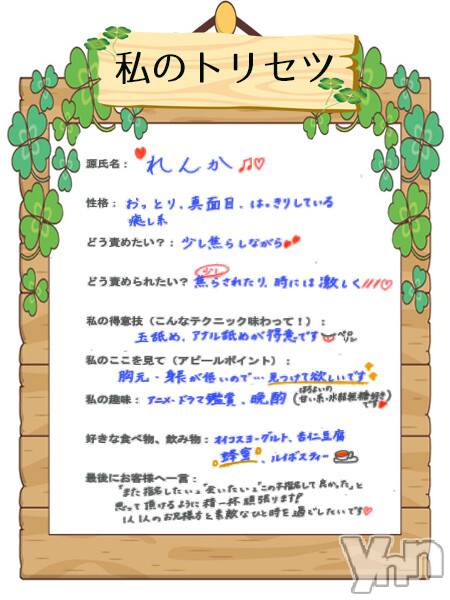 私のトリセツ
源氏名： れんか♫♡
性格： おっとり、真面目、はっきりしている
癒し系
どう責めたい？： 少し焦らしながら
どう責められたい？ 少し焦らされたり、時には激しく///♡
私の得意技（こんなテクニック味わって！）：
玉舐め、アナル舐めが得意です ペロリン
私のここを見て（アピールポイント）：
胸元・身長が低いので…見つけて欲しいです
私の趣味： アニメ・ドラマ鑑賞、晩酌（ほろよいの甘い系・水 好きです
好きな食べ物、飲み物： オイコスヨーグルト、杏仁豆腐
蜂蜜、ルイボスティー
最後にお客様へ一言：
“また指名したい”“会いたい”“この子指名して良かった”と
思って頂けるように精一杯頑張ります！
1人1人のお兄様方と素敵なひと時を過ごしたいです♡
ynn